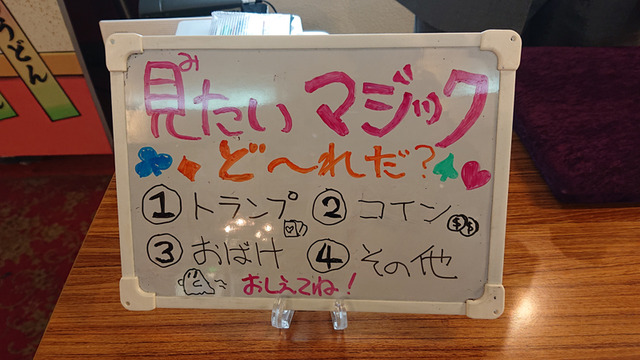 うどん
見たいマジック
み
ど〜れだ?
①トランプ ②コイン
③おばけ ④その他
おしえてね!